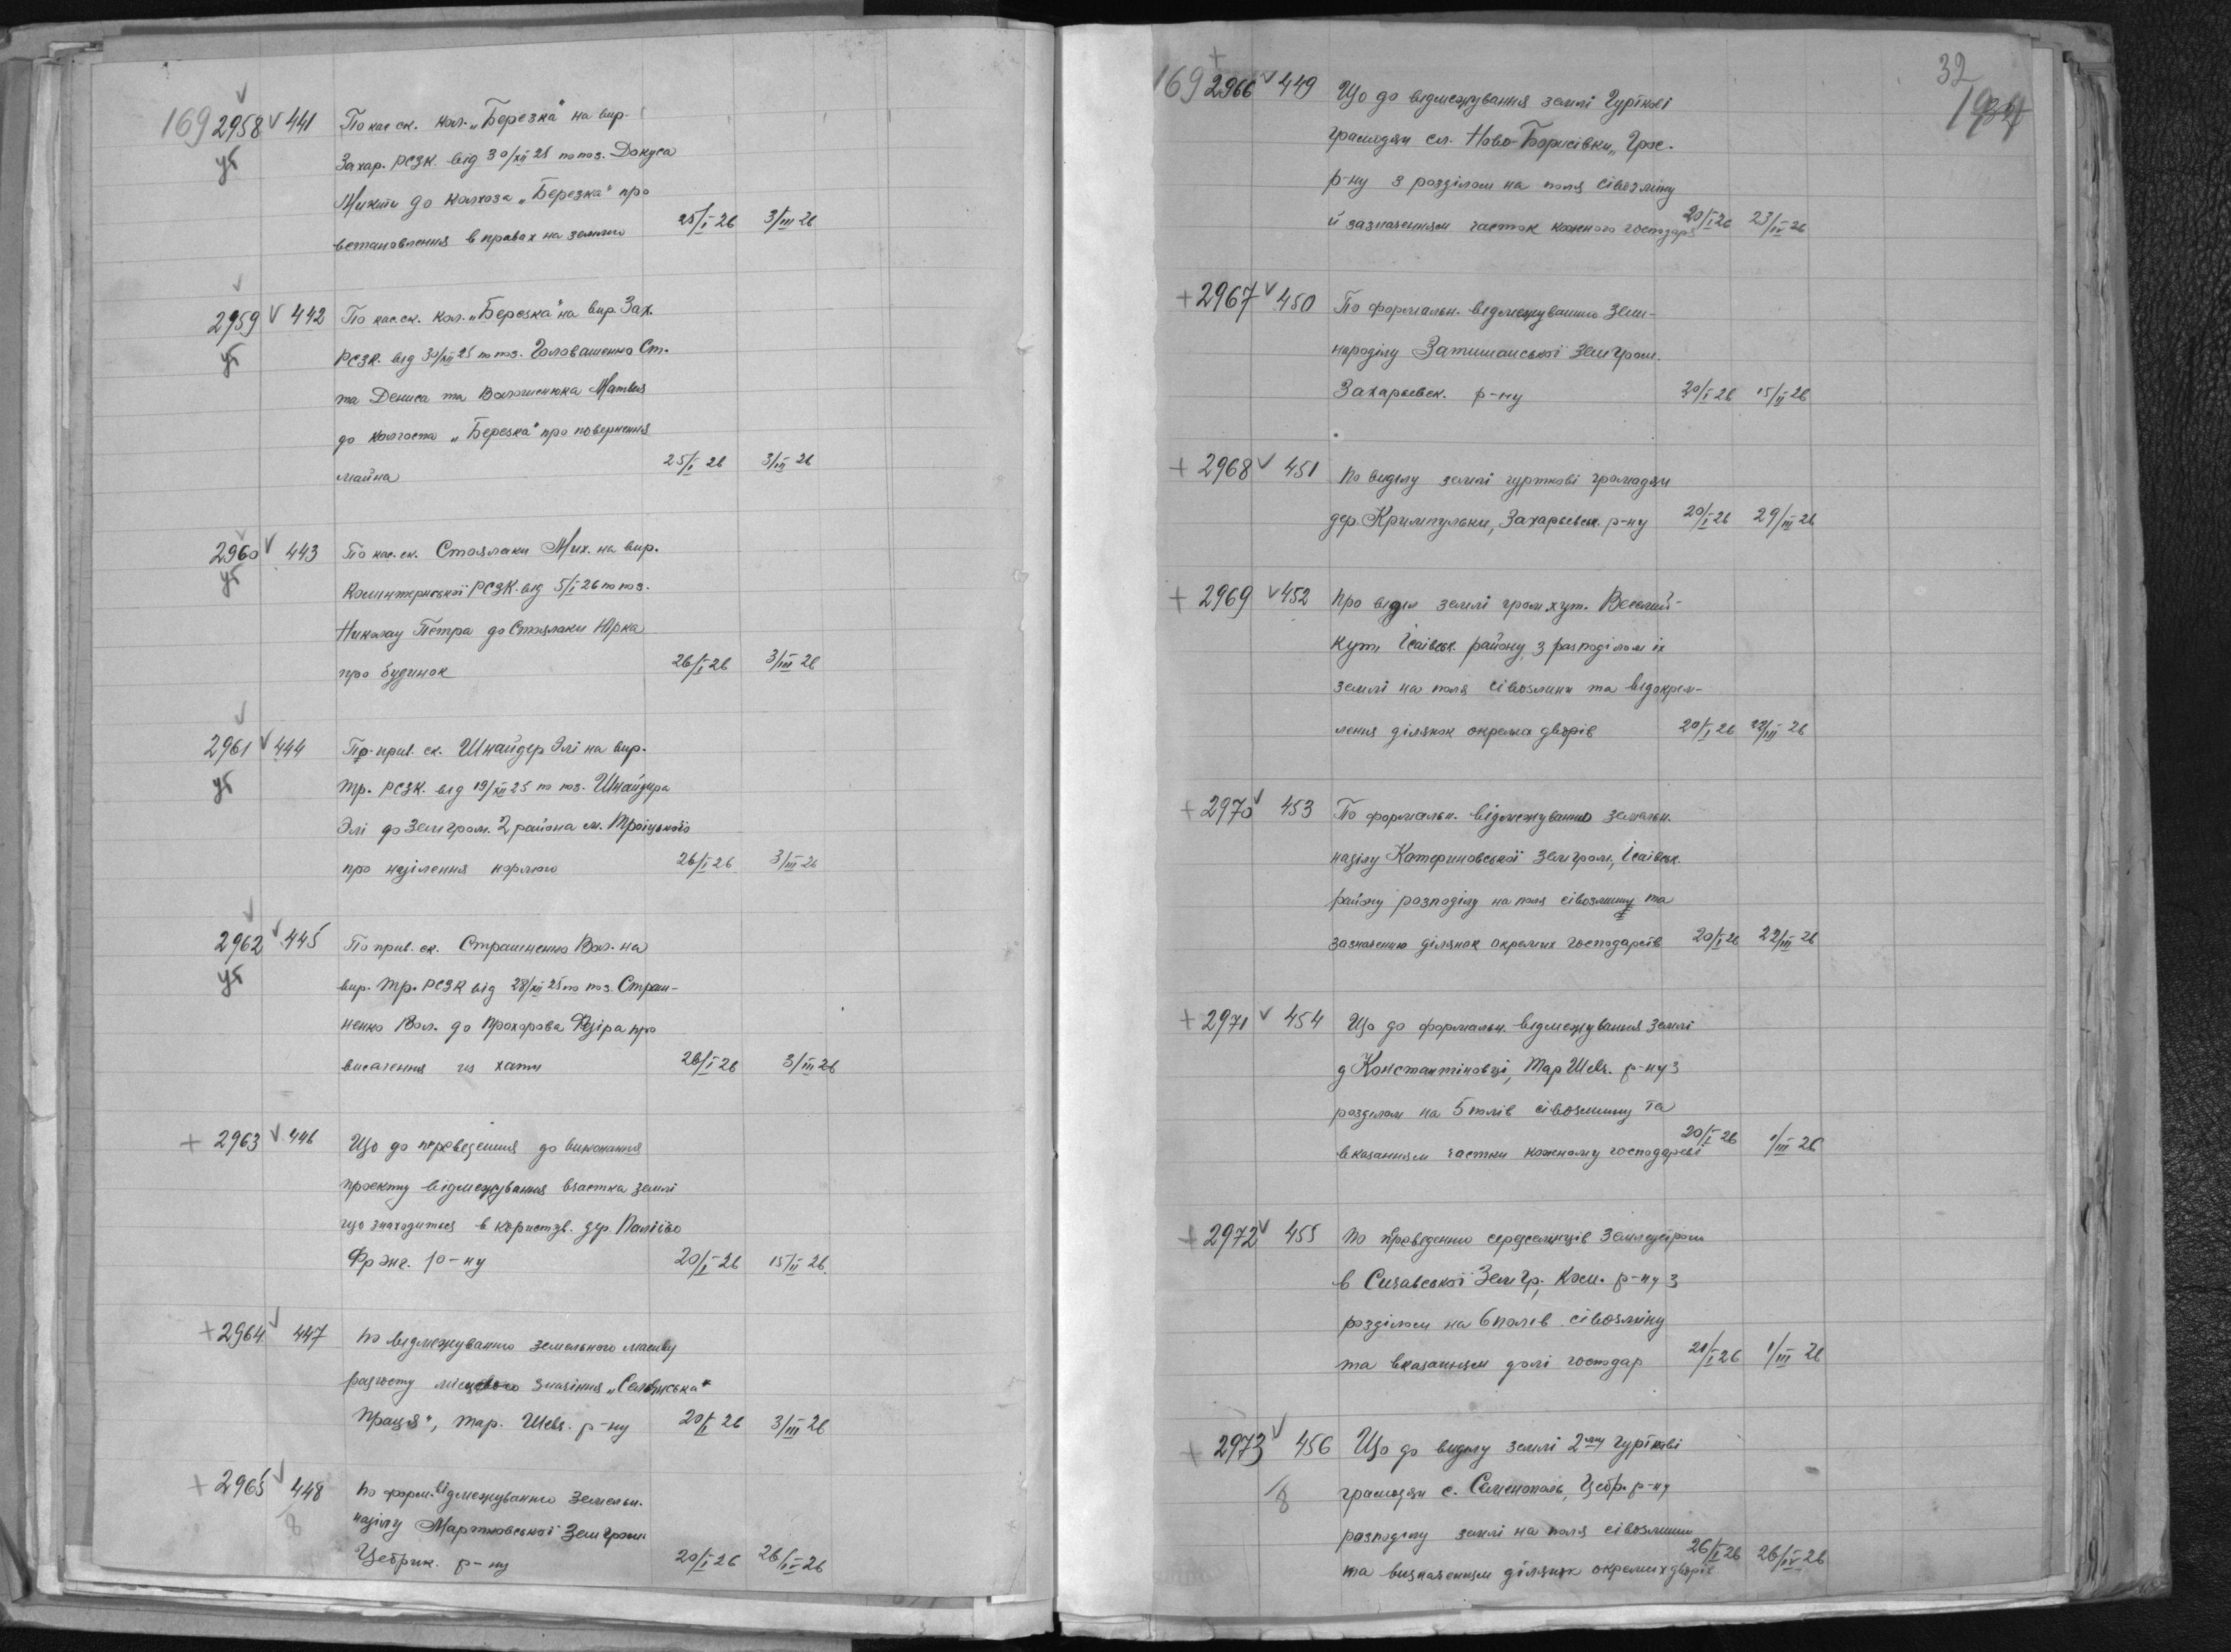 169 2958 441 По кас. ск. кол. „Березка" на вир.
уб Захар. РСЗК. від 30/XII 25 по поз. Докуса
Микити до колхоза „Березка" про
встановлення в правах на землю 25/I 26 3/III 26
2959 442 По кас. ск. кол. „Березка" на вир. Зах.
уб РСЗК. від 30/XII 25 по поз. Головашенко Ст.
та Дениса та Матвія
до колгоспа „Березка" про повернення
майна 25/I 26 3/III 26
2960 443 По кас. ск. Стоялаки Мих. на вир.
уб Комінтернської РСЗК. від 5/I 26 по поз.
Николау Петра до Стоялаки Юрка
про будинок 26/I 26 3/III 26
2961 444 По прив. ск. Шнайдер Элі на вир.
уб Тр. РСЗК. від 19/XII 25 по поз. Шнайдера
Элі до Земгром. 2 района м. Троїцького
про наділення нормою 26/I 26 3/III 26
2962 445 По прив. ск. Страшненко Вол. на
уб вир. Тр. РСЗК від 28/XII 25 по поз. Страш-
ненко Вол. до Прохорова про
виселення из хати 26/I 26 3/III 26
+ 2963 446 Що до переведення до виконання
проекту відмежування участка землі
що знаходиться в користв. дер. Паліїво
Фрунз. р-ну 20/I 26 15/II 26
+ 2964 447 По відмежуванню земельного масиву
радгоспу місцевого значіння „Селянська
Праця", Тар. Шевч. р-ну 20/I 26 3/III 26
+ 2965 448 По форм. відмежуванню земельн.
8 наділу Мартиновської Земгром.
Цебрик. р-ну 20/I 26 26/IV 26
32
+
169 2966 449 Що до відмежування землі гурткові
громодян сл. Ново-Борисівки, Грос.
р-ну з розділом на поля сівозміну
й зазначенням часток кожного господаря 20/I 26 23/IV 26
+ 2967 450 По формальн. відмежуванню зем-
народілу Затишанської Земгром.
Захарьевск. р-ну 20/I 26 15/II 26
+ 2968 451 По виділу землі гурткові громадян
дер. Кримпульки, Захарьевськ. р-ну 20/I 26 29/III 26
+ 2969 452 Про виділ землі гром. хут. Веселий-
Кут, Ісаївськ. району, з разподілом їх
землі на поля сівозміни та відокрем-
лення ділянок окремих дворів 20/I 26 22/III 26
+ 2970 453 По формальн. відмежуванню земельн.
наділу Катериновської Земгром, Ісаївськ.
району розподілу на поля сівозміну та
зазначенню ділянок окремих господарств 20/I 26 22/III 26
+ 2971 454 Що до формальн. відмежування землі
д Константіновці, Тар Шевч. р-ну з
розділом на 5 полів сівозміну та
вказанням частки кожному господареві 20/I 26 1/III 26
+ 2972 455 По проведенню землеустрою
в Сичавської Земгр, Ком. р-ну з
розділом на 6 полів сівозміну
та вказанням долі господар 21/I 26 1/III 26
+ 2973 456 Що до виділу землі 2му гурткові
8 громодян с. Семенополь, Цебр. р-ну
розподілу землі на поля сівозміни
та визначенням ділянок окремих дворів 26/I 26 26/IV 26